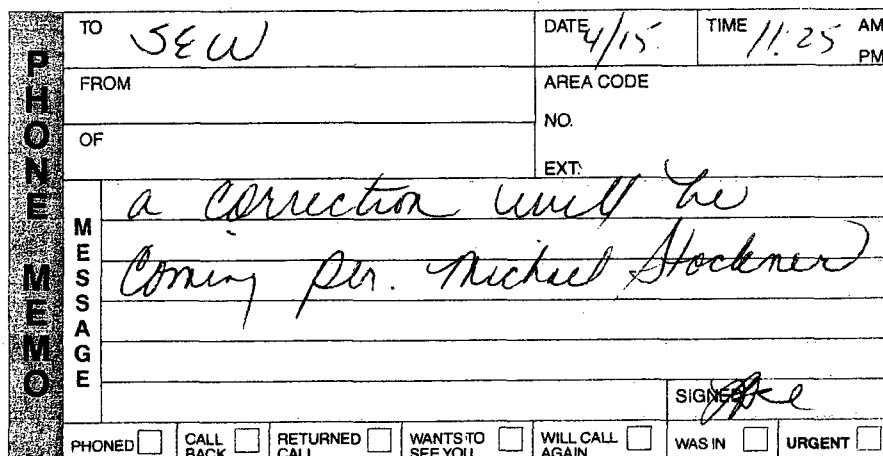 PHONE MEMO
TO SEW
DATE 4/15
TIME 11:25 AM
PM
FROM
AREA CODE
NO.
OF
EXT:
MESSAGE
a correction will be
Coming per. Michael Stockner
SIGNED
PHONED
CALL BACK
RETURNED CALL
WANTS TO SEE YOU
WILL CALL AGAIN
WAS IN
URGENT